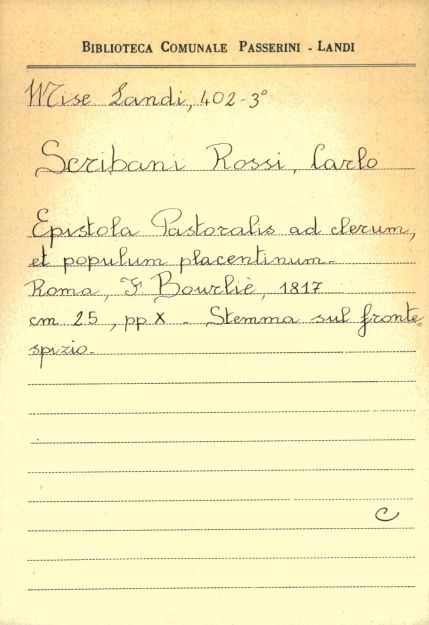 BIBLIOTECA COMUNALE PASSERINI - LANDI
Misc Landi, 402-3°
Scribani Rossi, Carlo
Epistola Pastoralis ad clerum,
et populum placentinum.
Roma, F. Bourliè, 1817
cm 25, pp X - Stemma sul fronte=
spizio.
C